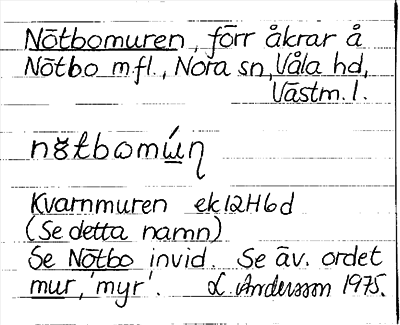 Nötbomuren, förr åkrar å
Nötbo m fl., Nora sn, Våla hd,
Västm. l.
Kvarnmuren ek 12H6d
(Se detta namn)
Se Nötbo invid. Se äv. ordet
mur, 'myr'. L. Andersson 1975.